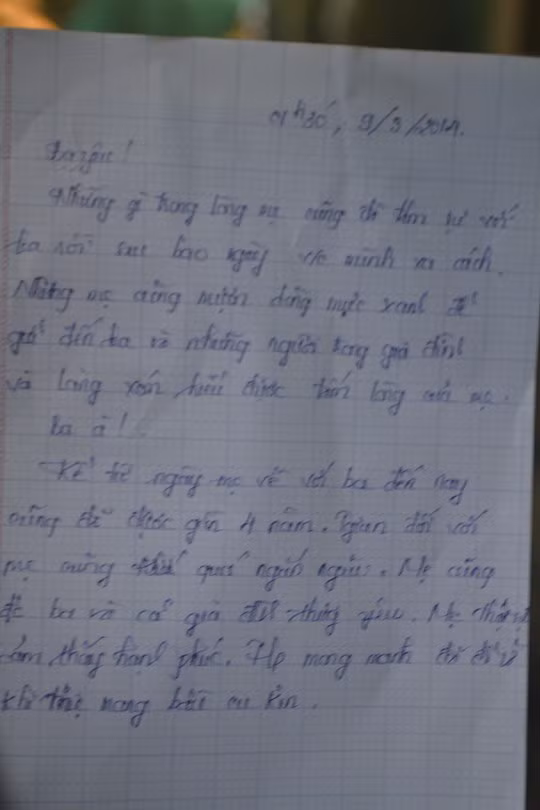 01h30, 9/3/2014.
Ba
Những gì trong lòng mẹ cũng đã tâm sự với
ba rồi sau bao ngày vc mình xa cách.
Nhưng mẹ cũng mượn dòng mực xanh để
gửi đến ba và những người trong gia đình
và làng xóm hiểu được tấm lòng của mẹ.
Ba à!
Kể từ ngày mẹ về với ba đến nay
cũng đã được gần 4 năm. gian đối với
mẹ cũng quá ngắn ngủi. Mẹ cũng
ba và cả gia đình thương yêu. Mẹ thấy
hạnh phúc. mong manh
khi mang